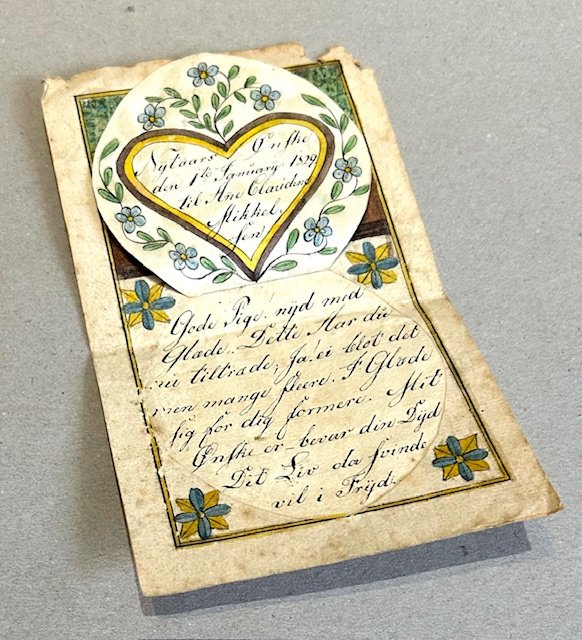 Nytaars Ønske
den 1te January 1829
til Ane Claridem
Mikkel,
sen
Gode Pige! nÿd med
Glæde. Dette Aar du
nu tiltræde; Ja! ei blot det
men mange fleere. F Glæde
sig for dig formere. Mit
Ønske er bevar din Dyd
Det Liv da svinde
vil i Fryd.